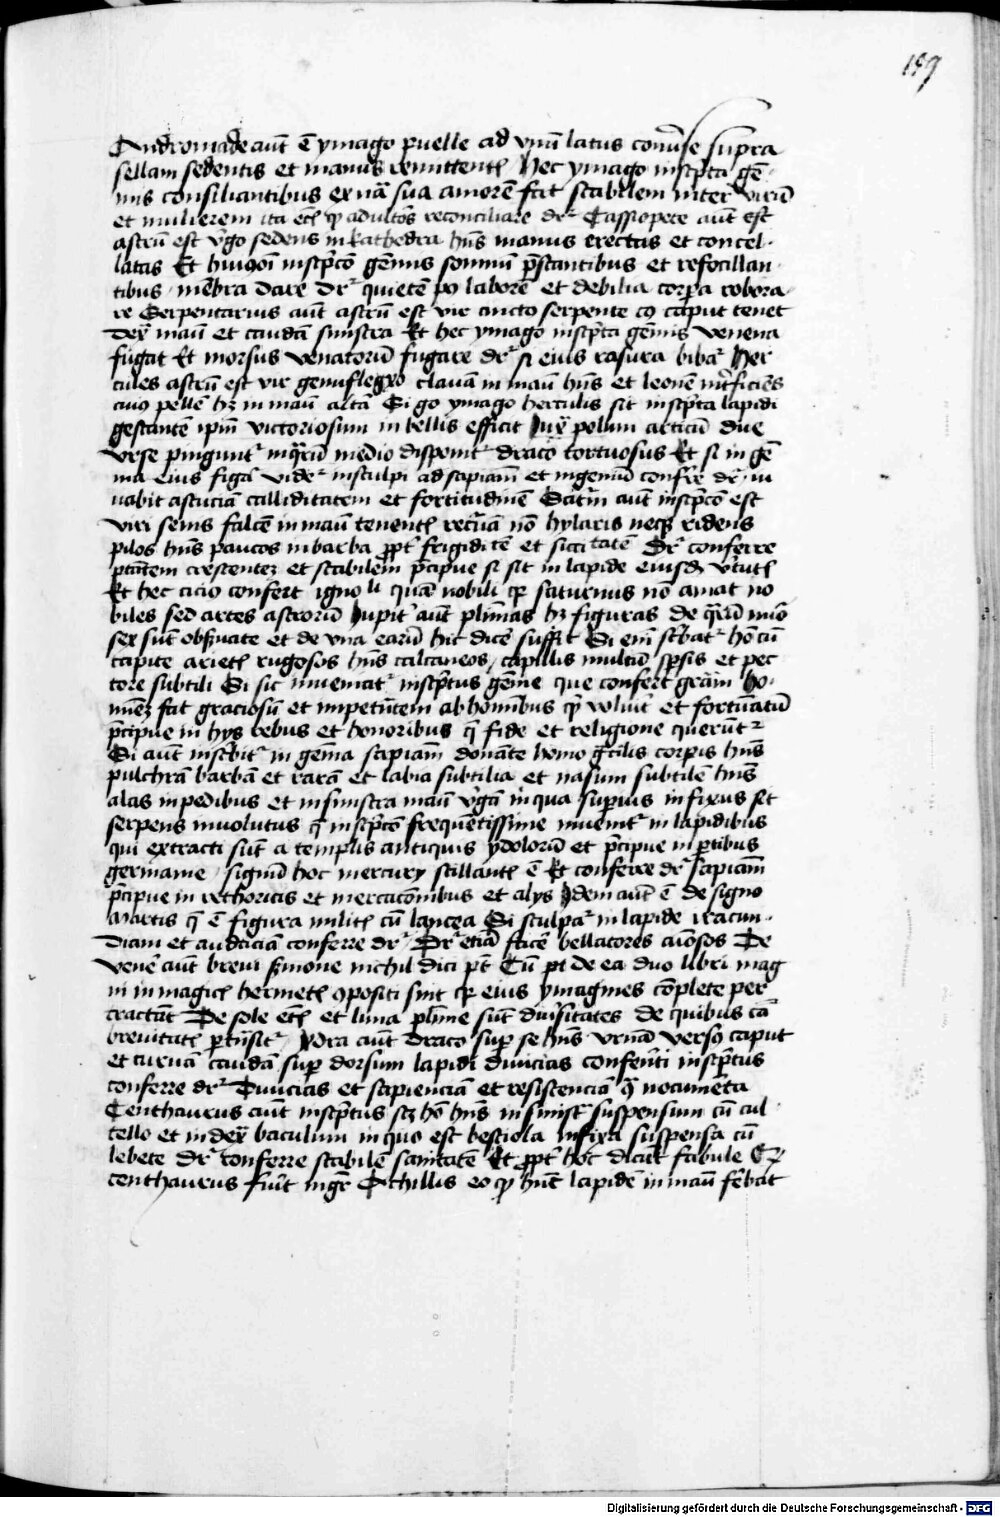 159
Andromade aūt ē ymago puelle ad vnū latus conūse supra
sellam sedentis et manus remittentꝭ Hec ymago inscp̄ta gē-
mis consiliantibus ex nā sua amorē fat̄ stabilem inter virū
et mulierem ita etꝭ qꝫ adultos reconciliare drꝫ Cassiopeie aūt est
astrū est v̄go sedens in kathedra hn̄s manus erectas et concel-
latas Et huiꝰmōi inscp̄to gēmis somnū p̄stantibus et refocillan
tibus mēbra dare drꝫ quietē p9 laborē et debilia corpa robora
re Serpentarius aūt astrū est vir cincto serpente cuiꝰ caput tenet
dex̄ manū et caudā sinistra Et hec ymago inscp̄ta gēmis venena
fugat Et morsus venatorū fugare drꝫ si eius rasura bibat̄ Her
cules astrū est vir genuflegxo clauam in manū hn̄s et leonē int̄ficiēs
cuiꝰ pellē hꝫ in manū altā Si gͦ ymago herculis sit inscp̄ta lapidi
gestantē ip̄m victoriosum in bellis efficit Iux̄ polum articū due
vrse pingunt̄ in q̄rū medio disponit̄ draco tortuosus Et si in gē
ma eius figā videt̄ insculpi ad sapiam̄ et ingeniū confr̄re drꝫ iu
uabit astuciā calliditatem et fortitudinē Sat̄ni aūt inscp̄to est
viri senis falcē in manū tenentꝭ recuā nō hylaris neqꝫ ridens
pilos hn̄s paucos in barba ꝓpt̄ frigiditē et siccitatē Drꝫ conferre
ptātem crescentez et stabilem p̄cipue si sit in lapide eiusdꝫ v̄tutꝭ
Et hec cicius confert igno li quā nobili qꝫ saturnus nō amat no
biles sed artes astrorū Iupit̄ aūt plim̄as hꝫ figuras de q̄rū nūo
sex sūt obs̄uate et de vna earū hic dicē suffit̄ Si em̄ sc̄bat̄ hō cū
capite arietꝭ rugosos hn̄s calcaneos capillis multū sp̄sis et pec
tore subtili Si sic inueniat̄ inscp̄tus gēme que confert gr̄am ho-
minēz fat̄ graciosū et impetn̄tem ab hominibus qꝫ voluit̄ et fortunatū
p̄cipue in hys rebus et honoribus q̄ fide et religione querūt̄
Si aūt insc̄bit̄ in gēma sapiam̄ donante homo g̃cilis corpis hn̄s
pulchrā barbā et rarā et labia subtilia et nasum subtilē hn̄s
alas in pedibus et in sinistra manū v̄gā in qua supius infixus sit
serpens inuolutus q̄ inscp̄to frequētissime inuenit̄ in lapidibus
qui extracti sūt a templis antiquis ydolorū et p̄cipue in p̄tibus
germanie signū hoc mercury stillantꝭ ē Et conferre drꝫ sapiam̄
p̄cipue in rethoricis et mercacōnibus et alys Idem aūt ē de signo
Martis q̄ ē figura militꝭ cū lancea Si sculpat̄ in lapide iracun-
diam et audaciā conferre drꝫ Drꝫ etiā facē bellatores aīosos De
venē aūt breui s̄mone nichil dici pōt Cū pt̄ de ea duo libri mag
ni in magicꝭ hermetꝭ ꝯpositi sint qꝫ eius ymagines cōplete per
tractāt De sole etꝭ et luna plime sūt diūsitates de quibus cā
breuitatꝭ p̄tn̄sit̄ Ydra aūt draco sup se hn̄s vrnā versꝰ caput
et curuā caudā sup dorsum lapidi diuicias confen̄ti inscp̄tus
conferre drꝫ Diuicias et sapienciā et resistenciā q̄ nocumēta
Centhaurus aūt inscp̄tus scꝫ hō hn̄s in sinistꝫ suspensum cū cul
tello et in dex̄ baculum in quo est bestiola infixa suspensa cū
lebete drꝫ conferre stabilē sanitatē Et ꝓpt̄ hoc dicūt fabule qꝫ
centhaurus fuit mgr̄ Achillis eo qꝫ hn̄t lapidē in manū ferebat
Digitalisierung gefördert durch die Deutsche Forschungsgemeinschaft - DFG